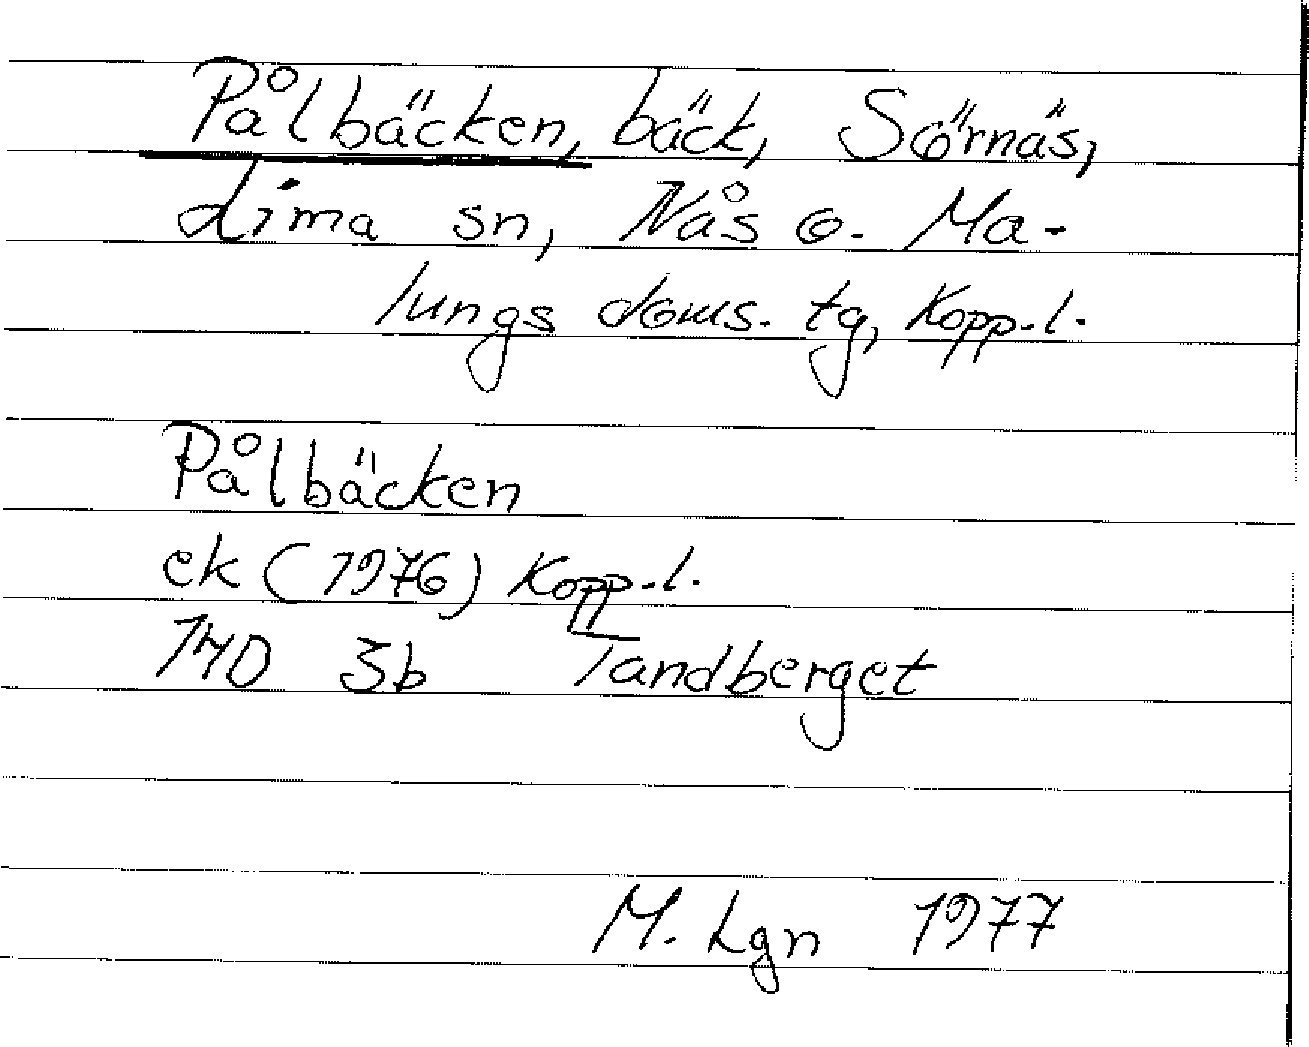 Pålbäcken, bäck, Sörnäs,
Lima sn, Nås o. Ma-
lungs doms. tg, Kopp. l.
Pålbäcken
ek (1976) Kopp. l.
14D 3b Tandberget
M. Lgn 1977